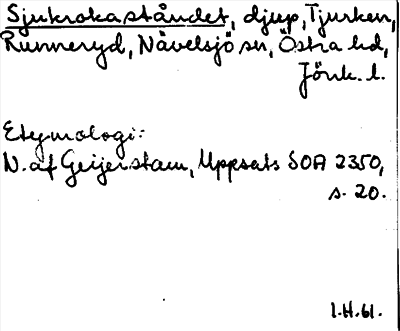 Sjukrokaståndet, djup, Tjurken,
Runneryd, Nävelsjö sn, Östra hd,
Jönk. l.
Etymologi:
N. af Geijerstam, Uppsats SOA 2350,
s. 20.
I.H.61.